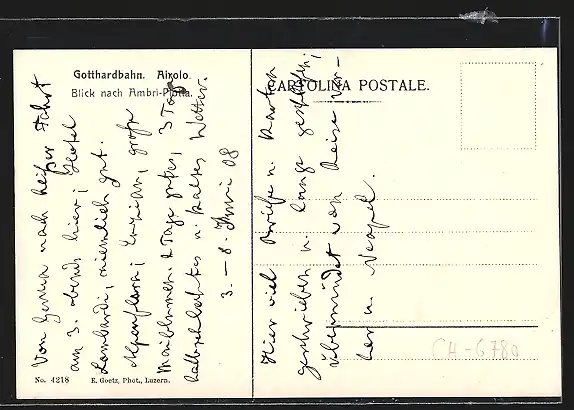 Gotthardbahn. Airolo.
Blick nach Ambri-Piotta.
CARTOLINA POSTALE.
Von Genua nach heißer Fahrt
am 3. abends hier; Hotel
Lombardi, ziemlich gut.
Alpenflora; Enzian, große
Maiblumen. 2 Tage gutes, 3 Tage
halbschlechtes u. kaltes Wetter.
3.–8. Juni 08
Hier viel Briefe u. Karten
geschrieben u. lange geschlafen;
übermüdet von Reise vor-
her u. Neapel.
No. 4218 E. Goetz, Phot., Luzern.
CH-6780